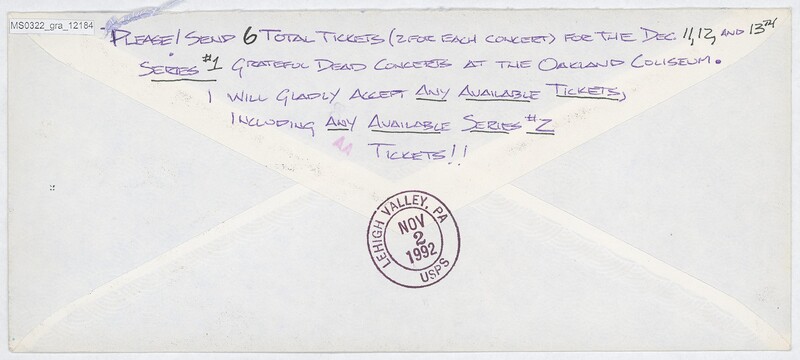 MS0322_gra_12184
PLEASE! SEND 6 TOTAL TICKETS (2 FOR EACH CONCERT) FOR THE DEC. 11, 12, AND 13TH
SERIES #1 GRATEFUL DEAD CONCERTS AT THE OAKLAND COLISEUM.
I WILL GLADLY ACCEPT ANY AVAILABLE TICKETS,
INCLUDING ANY AVAILABLE SERIES #2
TICKETS!!
AA
LEHIGH VALLEY, PA
NOV
2
1992
USPS